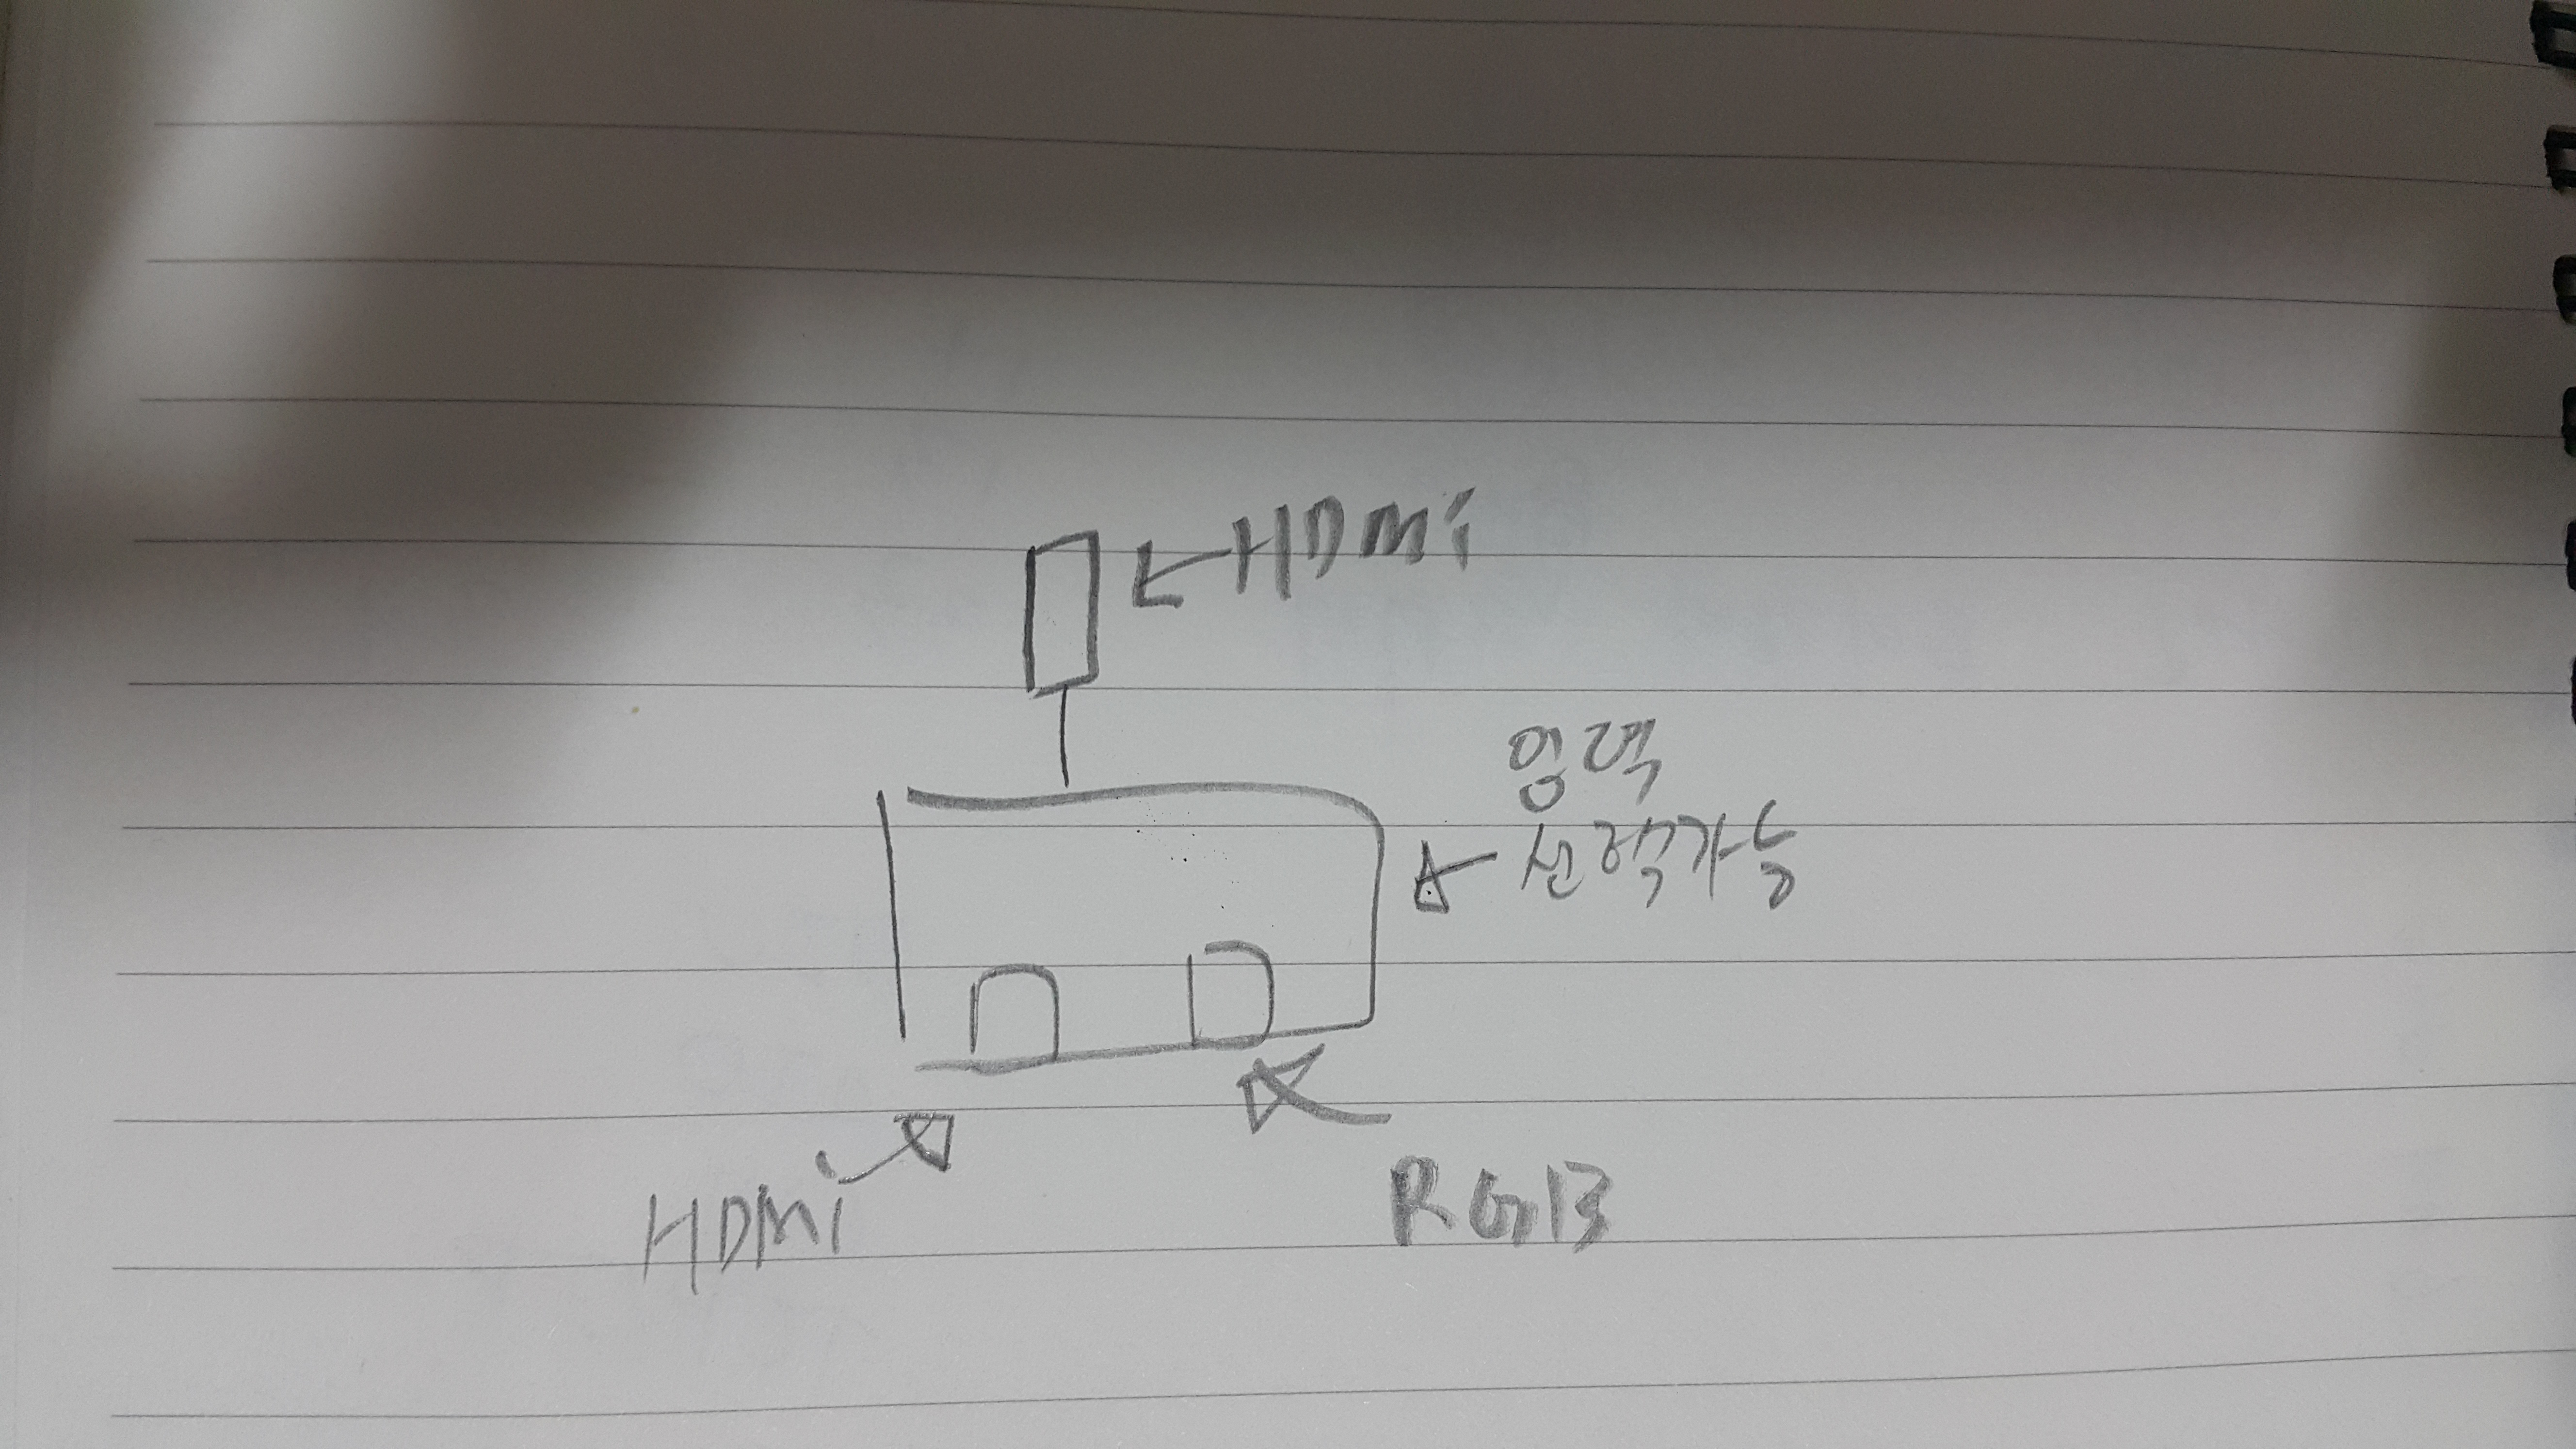 HDMi
입력
선택가능
HDMi
RGB